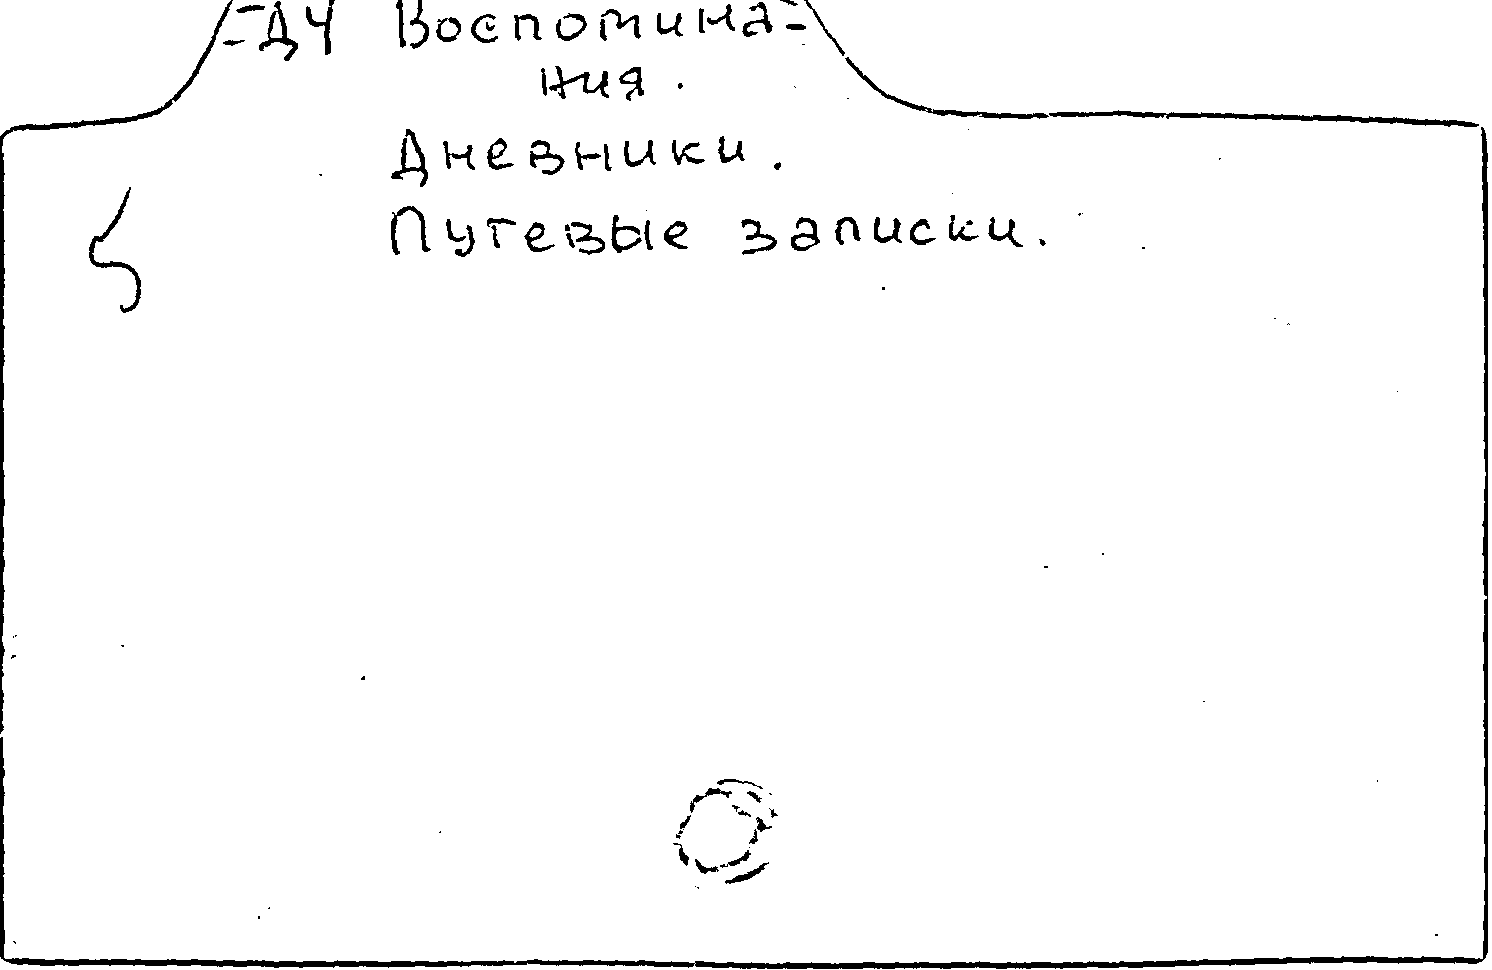 =Д4 Воспомина=
ния.
Дневники.
Путевые записки.